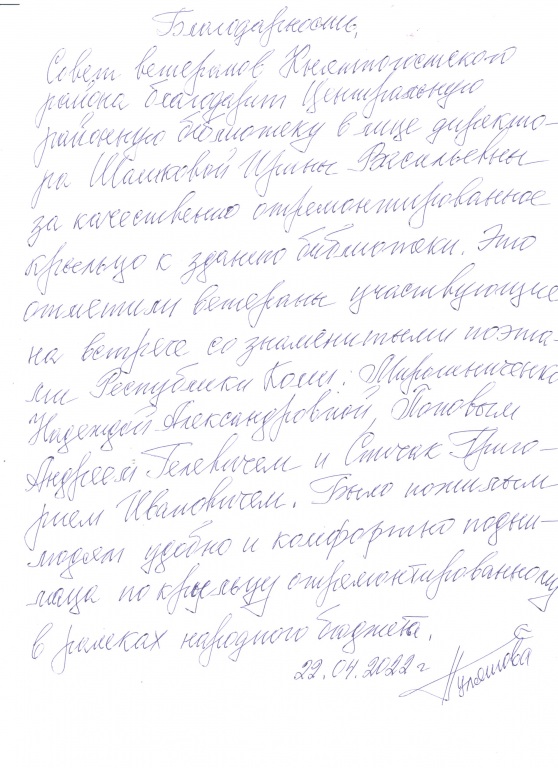 Благодарность.
Совет ветеранов Княжпогостского
района благодарит Центральную
районную библиотеку в лице директо-
ра Шашковой Ирины Васильевны
за качественно отремонтированное
крыльцо к зданию библиотеки. Это
отметили ветераны участвующие
на встрече со знаменитыми поэта-
ми Республики Коми: Мирошниченко
Надеждой Александровной, Поповым
Андреем Гелевичем и Спичак Григо-
рием Ивановичем. Было пожилым
людям удобно и комфортно подни-
маца по крыльцу отремонтированному
в рамках народного бюджета.
22.04.2022 г